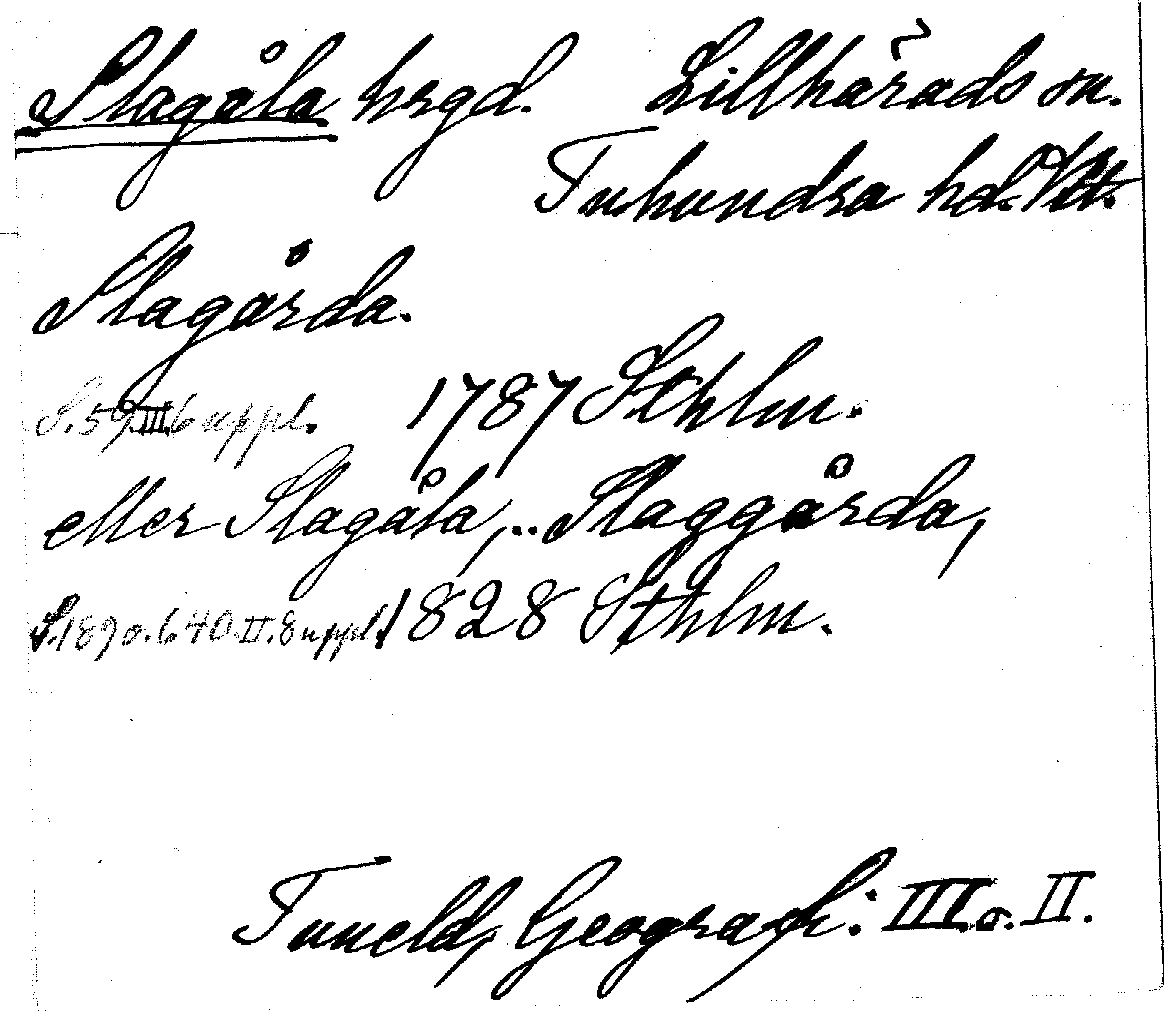 Slagåla hrgd. Lillhärads sn.
Tuhundra hd. Vst.
Slagårda.
S. 59. III. 6 uppl. 1787 Sthlm.
eller Slagåla, .. Slaggårda,
S. 189 o. 640. II. 8 uppl. 1828 Sthlm.
Tuneld, Geografi: III. o. II.